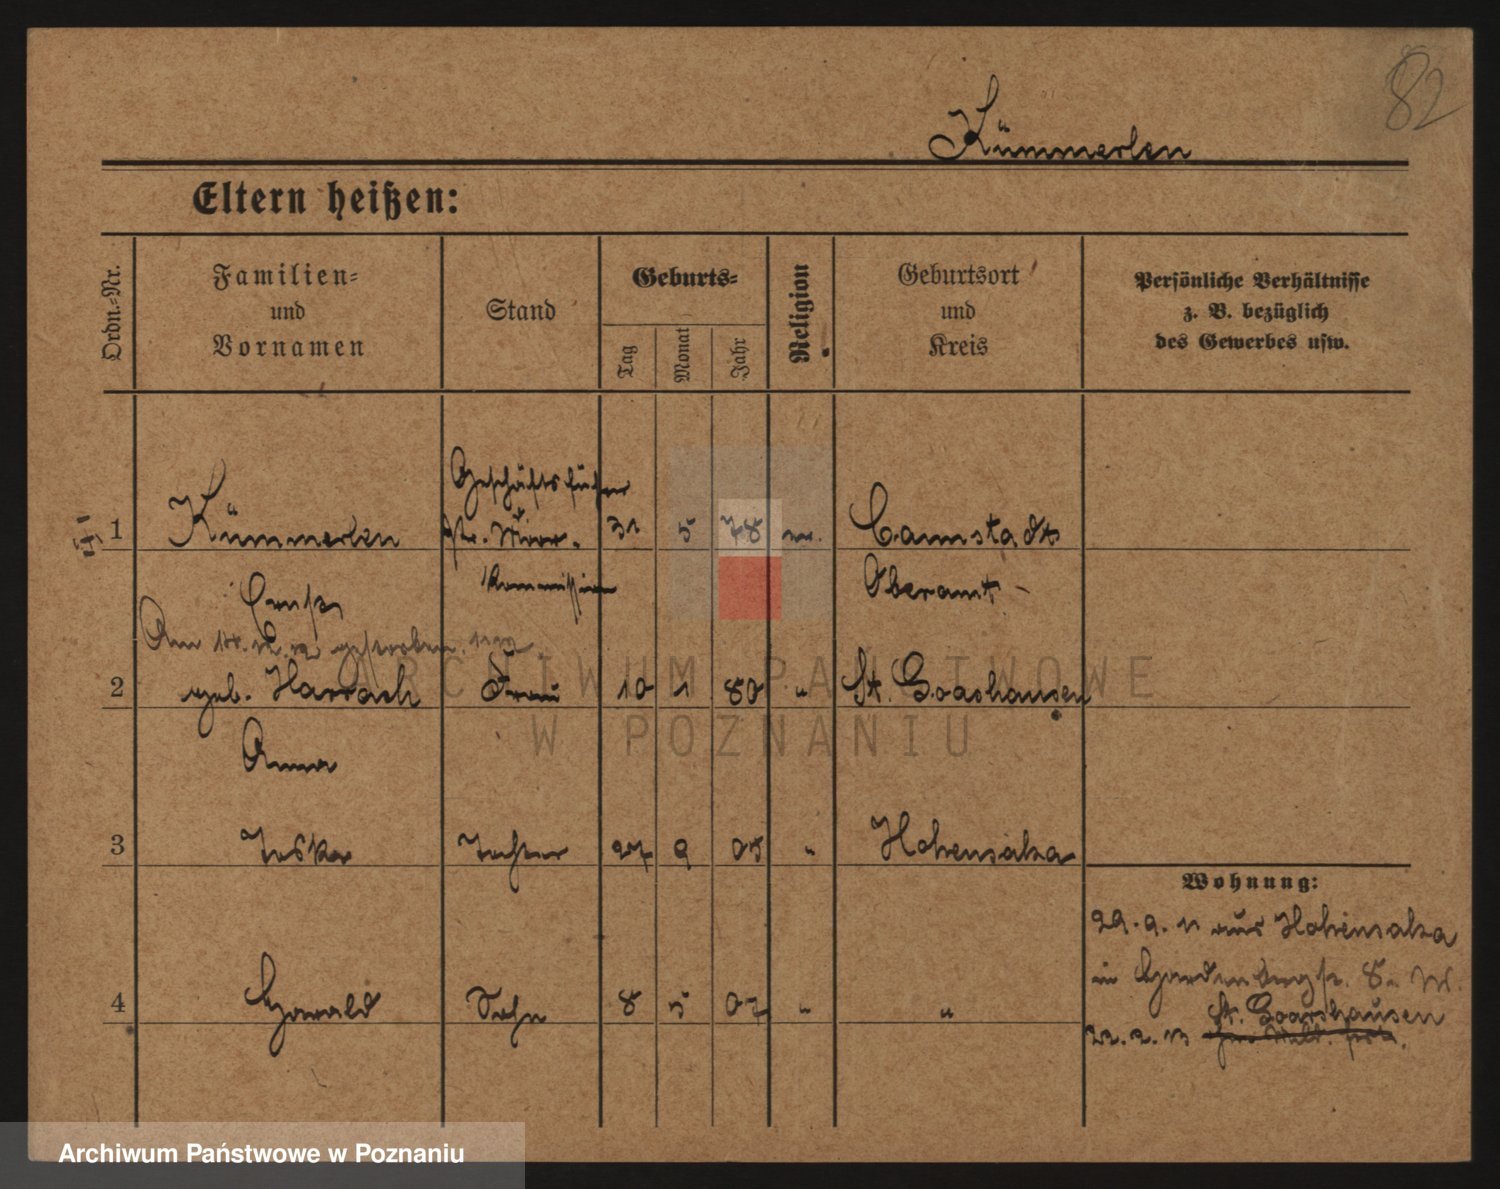 82
Kümmerlen
Eltern heißen:
Ordn.=Nr.
Familien=
und
Vornamen
Stand
Geburts=
Tag
Monat
Jahr
Religion
Geburtsort
und
Kreis
Persönliche Verhältnisse
z. B. bezüglich
des Gewerbes usw.
Geschäftsführer
1 Kümmerlen 31 5 78 Cannstadt
Kommission Oberamt -
Ernst
Am gestorben.
2 geb. Harrach Frau 10 1 80 " St. Goashausen
Anna
3 Tochter 27 9 05 " Hohensalza
Wohnung:
29. 9. 11 aus Hohensalza
in 8. W.
4 Harald Sohn 8 5 07 " "
St. Goarshausen
22. 2. 13
ARCHIWUM PAŃSTWOWE
W POZNANIU
Archiwum Państwowe w Poznaniu